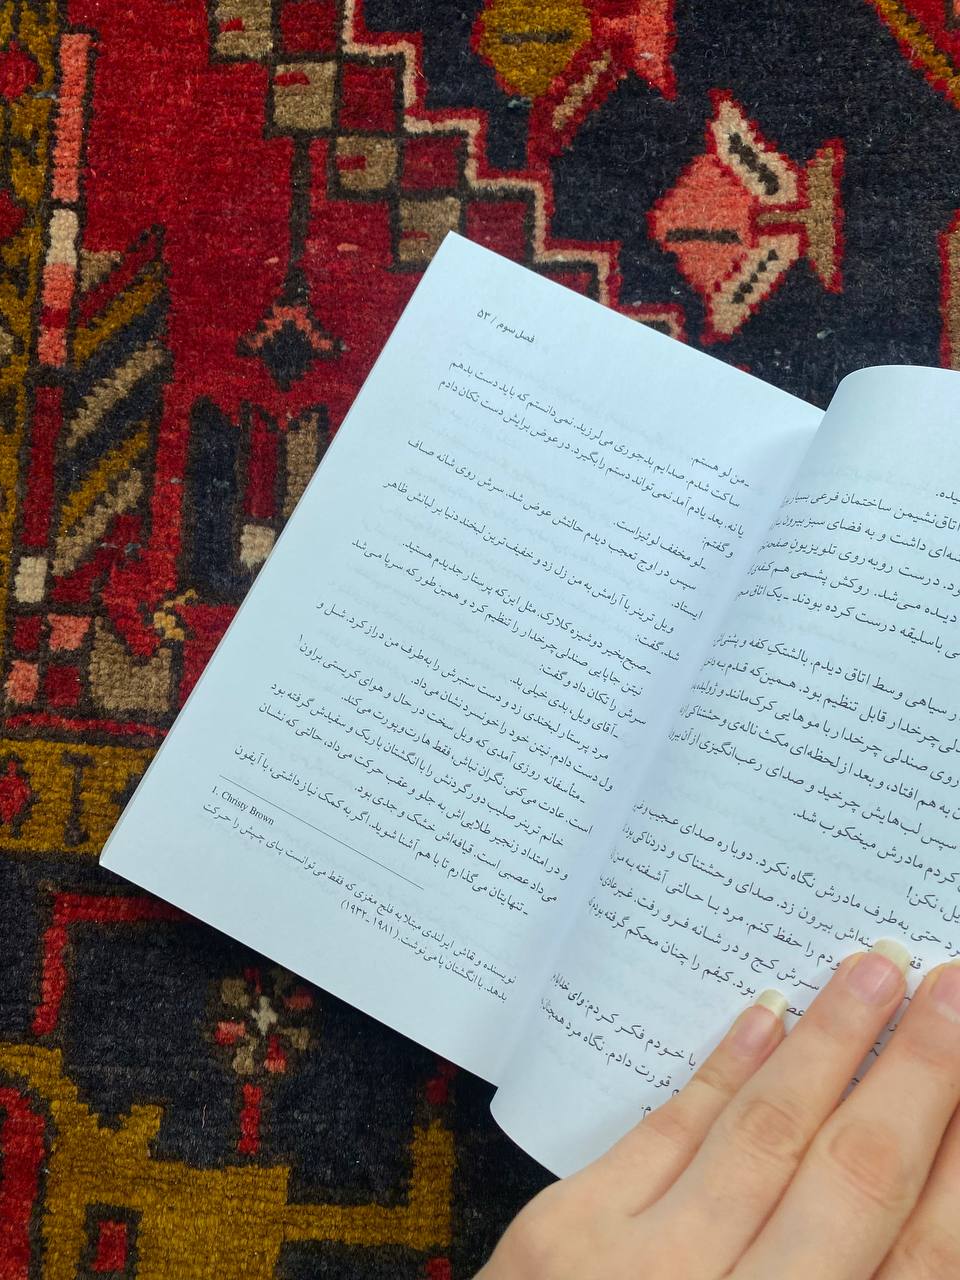 اتاق نشیمن ساختمان فرعی بسیار
داشت و به فضای سبز بیرون
درست روبه‌روی تلویزیون صفحه
دیده می‌شد. روکش پشمی هم
باسلیقه درست کرده بودند - یک اتاق
سیاهی وسط اتاق دیدم. بالشتک کفه و پشتی
چرخدار قابل تنظیم بود. همین‌که قدم به
روی صندلی چرخدار با موهایی کرک‌مانند و ژولیده
به هم افتاد، و بعد از لحظه‌ای مکث ناله‌ی وحشتناکی
سپس لب‌هایش چرخید و صدای رعب‌انگیزی از آن بیرون
کردم مادرش میخکوب شد.
نکن!
حتی به‌طرف مادرش نگاه نکرد. دوباره صدای عجیب
بیرون زد. صدای وحشتناک و دردناکی بود
را حفظ کنم. مرد با حالتی آشفته به من
سرش کج و در شانه فرو رفت. غیرعادی
بود. کیفم را چنان محکم گرفته بودم
با خودم فکر کردم: وای خدایا
قورت دادم. نگاه مرد همچنان
فصل سوم / ۵۳
ـ من لو هستم.
ساکت شدم. صدایم بدجوری می‌لرزید. نمی‌دانستم که باید دست بدهم
یا نه. بعد یادم آمد نمی‌تواند دستم را بگیرد. در عوض برایش دست تکان دادم
و گفتم:
ـ لو مخفف لوئیزاست.
سپس در اوج تعجب دیدم حالتش عوض شد. سرش روی شانه صاف
ایستاد.
ویل ترینر با آرامش به من زل زد و خفیف‌ترین لبخند دنیا بر لبانش ظاهر
شد. گفت:
ـ صبح‌بخیر دوشیزه کلارک. مثل این‌که پرستار جدیدم هستید.
نیتن جاپایی صندلی چرخدار را تنظیم کرد و همین طور که سرپا می‌شد
سرش را تکان داد و گفت:
ـ آقای ویل، بدی. خیلی بد.
مرد پرستار لبخندی زد و دست ستبرش را به‌طرف من دراز کرد. شل و
ول دست دادم. نیتن خود را خونسرد نشان می‌داد.
ـ متأسفانه روزی آمدی که ویل سخت در حال و هوای کریستی براون۱
است. عادت می‌کنی. نگران نباش، فقط هارت‌وپورت می‌کند.
خانم ترینر صلیب دور گردنش را با انگشتان باریک و سفیدش گرفته بود
و در امتداد زنجیر طلایی‌اش به جلو و عقب حرکت می‌داد، حالتی که نشان
می‌داد عصبی است. قیافه‌اش خشک و جدی بود.
ـ تنهایتان می‌گذارم تا با هم آشنا شوید. اگر به کمک نیاز داشتی، با آیفون
1. Christy Brown
نویسنده و نقاش ایرلندی مبتلا به فلج مغزی که فقط می‌توانست پای چپش را حرکت
بدهد. با انگشتان پا می‌نوشت. (۱۹۸۱ ـ ۱۹۳۲)